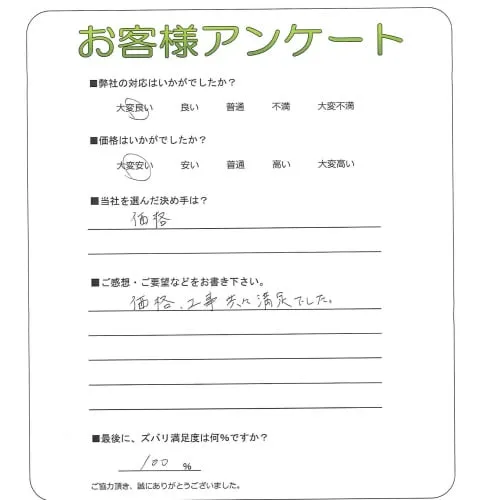 お客様アンケート
■弊社の対応はいかがでしたか?
大変良い 良い 普通 不満 大変不満
■価格はいかがでしたか?
大変安い 安い 普通 高い 大変高い
■当社を選んだ決め手は?
価格
■ご感想・ご要望などをお書き下さい。
価格、工事共に満足でした。
■最後に、ズバリ満足度は何%ですか?
100 %
ご協力頂き、誠にありがとうございました。